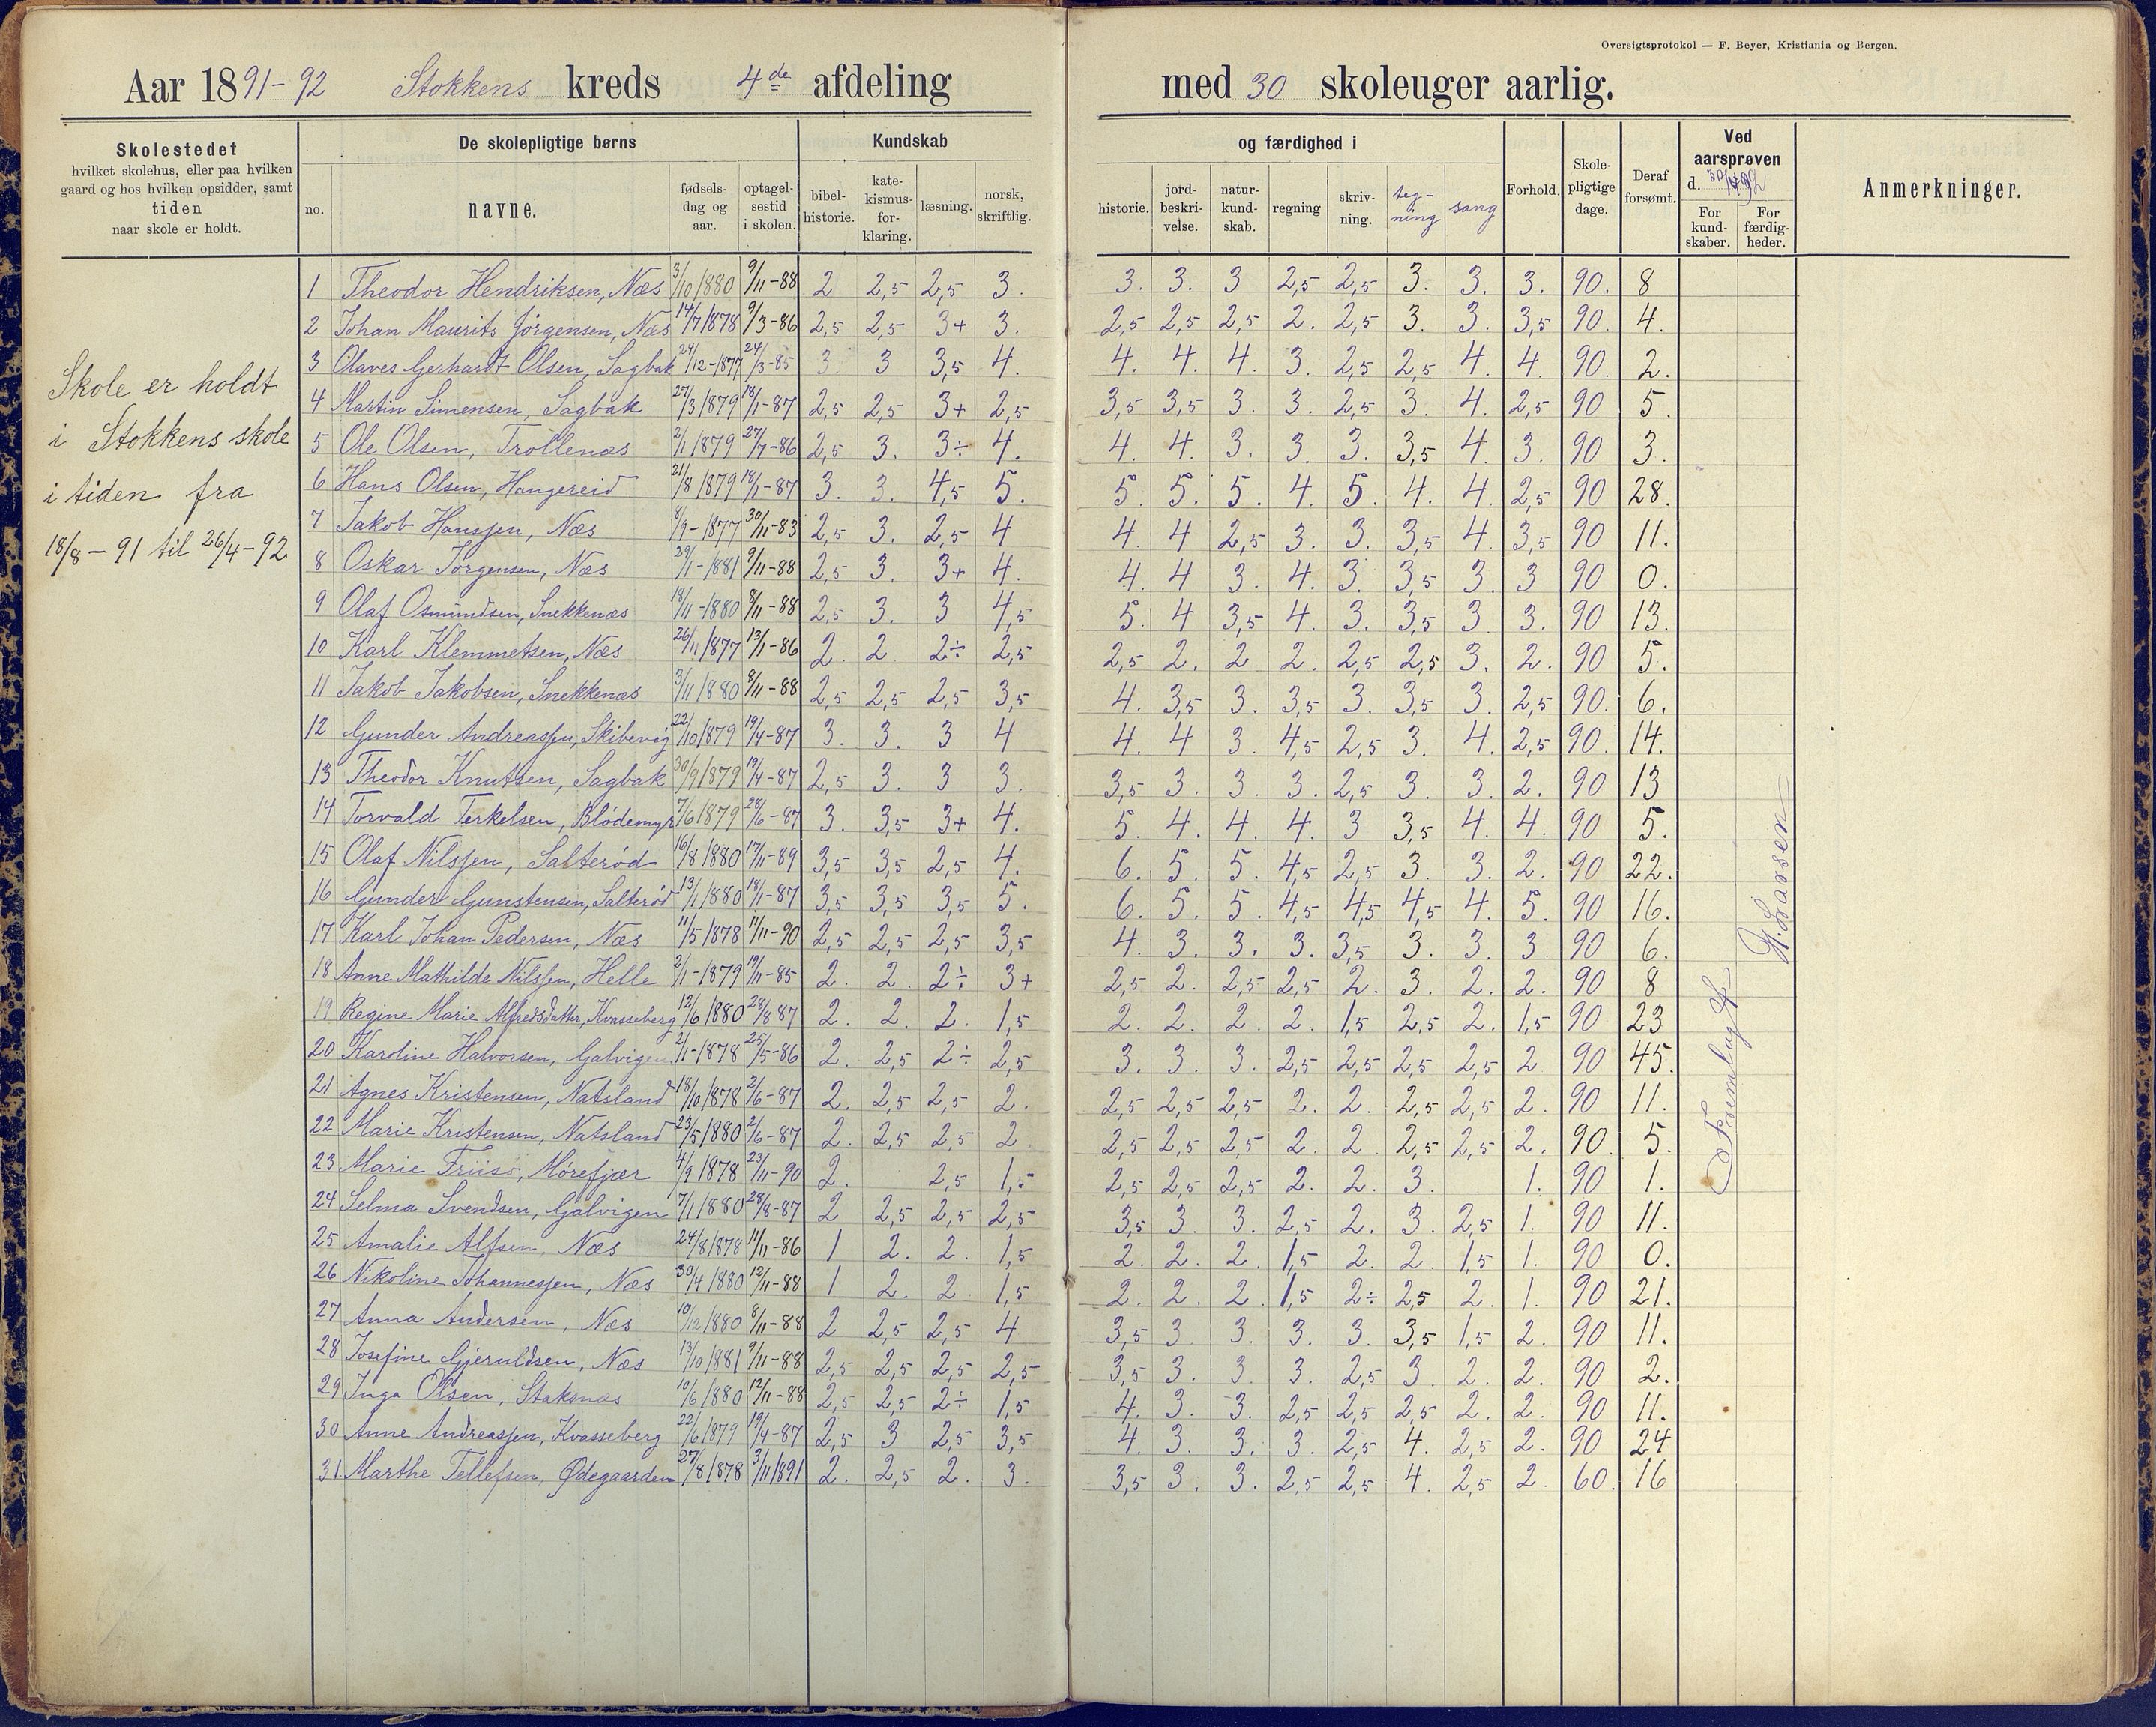 Oversigtsprotokol — F. Beyer, Kristiania og Bergen.
Aar 1891-92 Stokkens kreds 4de afdeling med 30 skoleuger aarlig.
Skolestedet
hvilket skolehus, eller paa hvilken
gaard og hos hvilken opsidder, samt
tiden
naar skole er holdt.
De skolepligtige børns
no.
navne.
fødsels-
dag og
aar.
optagel-
sestid
i skolen.
Kundskab
bibel-
historie.
kate-
kismus-
for-
klaring.
læsning.
norsk,
skriftlig.
og færdighed i
historie.
jord-
beskri-
velse.
natur-
kund-
skab.
regning
skriv-
ning.
teg-
ning
sang
Forhold.
Skole-
pligtige
dage.
Deraf
forsømt.
Ved
aarsprøven
d.
For
kund-
skaber.
For
færdig-
heder.
Anmerkninger.
Skole er holdt
i Stokkens skole
i tiden fra
18/8 - 91 til 26/4 - 92
1 Theodor Hendriksen, Næs 3/10 1880 9/11-88 2 2,5 2,5 3. 3. 3. 3 2,5 2,5 3. 3. 3. 90. 8
2 Johan Maurits Jörgensen, Næs 14/7 1878 9/3-86 2,5 2,5 3+ 3. 2,5 2,5 2,5 2. 2,5 3. 3. 3,5 90. 4.
3 Olaves Gerhardt Olsen, Sagbak 24/12-1877 24/3-85 3. 3 3,5 4. 4. 4. 4 3. 2,5 2,5 4. 4. 90. 2.
4 Martin Simensen, Sagbak 27/3 1879 18/1-87 2,5 2,5 3+ 2,5 3,5 3,5 3. 3. 2,5 3. 4. 2,5 90 5.
5 Ole Olsen, Trollenæs 2/1 1879 27/7-86 2,5 3. 3÷ 4. 4. 4. 3. 3. 3. 3,5 4. 3. 90 3.
6 Hans Olsen, Hangereid 21/8 1879 18/1-87 3. 3. 4,5 5. 5. 5. 5. 4. 5. 4. 4. 2,5 90 28.
7 Jakob Hanssen, Næs 8/9-1877 30/11-83 2,5 3. 2,5 4 4. 4 2,5 3. 3. 3,5 4. 3,5 90 11.
8 Oskar Jörgensen, Næs 29/1-1881 9/11-88 2,5 3. 3+ 4. 4. 4 3. 4. 3. 3,5 3. 3 90 0.
9 Olaf Osmundsen, Snekkenæs 18/11-1880 8/11-88 2,5 3. 3 4,5 5. 4 3,5 4. 3. 3,5 3 3. 90 13.
10 Karl Klemmetsen, Næs 26/11 1877 13/1-86 2. 2 2÷ 2,5 2,5 2. 2 2. 2,5 2,5 3. 2. 90 5.
11 Jakob Jakobsen, Snekkenæs 3/11 1880 8/11-88 2,5 2,5 2,5 3,5 4. 3,5 3. 3,5 3. 3,5 3. 2,5 90. 6.
12 Gunder Andreassen, Skibevig 22/10 1879 19/4-87 3. 3. 3 4 4. 4 3. 4,5 2,5 3. 4. 2,5 90. 14.
13 Theodor Knutsen, Sagbak 30/9 1879 19/4-87 2,5 3. 3 3. 3,5 3. 3. 3. 2,5 3. 3. 2. 90 13
14 Torvald Terkelsen, Blödemyr 7/6 1879 28/6-87 3. 3,5 3+ 4. 5. 4. 4. 4. 3 3,5 4. 4. 90 5.
15 Olaf Nilssen, Salteröd 16/8 1880 17/11-89 3,5 3,5 2,5 4. 6. 5. 5. 4,5 2,5 3. 3. 2. 90 22.
16 Gunder Gunstensen, Salteröd 13/1 1880 18/1-87 3,5 3,5 3,5 5. 6. 5. 5. 4,5 4,5 4,5 4. 5. 90 16.
17 Karl Johan Pedersen, Næs 11/5 1878 11/11-90 2,5 2,5 2,5 3,5 4. 3. 3. 3. 3,5 3. 3. 3 90 6.
18 Anne Mathilde Nilssen, Helle 2/1-1879 19/11-85 2. 2. 2÷ 3+ 2,5 2. 2,5 2,5 2. 3. 2. 2. 90 8
19 Regine Marie Alfredsdatter, Kvasseberg 12/6 1880 28/8 87 2. 2. 2. 1,5 2. 2. 2. 2. 1,5 2,5 2. 1,5 90 23
20 Karoline Halvorsen, Galvigen 2/1-1878 25/5-86 2. 2,5 2÷ 2,5 3. 3. 3. 2,5 2,5 2,5 2,5 2 90 45.
21 Agnes Kristensen, Natsland 18/10 1878 2/6-87 2. 2,5 2,5 2. 2,5 2,5 2,5 2. 2. 2,5 2,5 2. 90 11.
22 Marie Kristensen, Natsland 23/5 1880 2/6-87 2. 2,5 2,5 2 2,5 2,5 2,5 2. 2 2,5 2,5 2. 90. 5.
23 Marie Friisö, Mörefjær 4/9 1878 23/11-90 2. 2,5 1,5 2,5 2,5 2,5 2. 2. 3. 1. 90 1.
24 Selma Svendsen, Galvigen 7/1 1880 28/8-87 2 2,5 2,5 2,5 3,5 3. 3. 2,5 2. 3. 2,5 1. 90 11.
25 Amalie Alfsen, Næs 24/8 1878 11/11-86 1 2. 2. 1,5 2. 2. 2. 1,5 2. 2. 1,5 1. 90 0.
26 Nikoline Johannessen, Næs 30/4 1880 12/11-88 1 2. 2. 1,5 2. 2. 2 1,5 2÷ 2,5 2. 1. 90 21.
27 Anna Andersen, Næs 10/12 1880 8/11-88 2 2,5 2,5 4 3,5 3 3. 3. 3. 3,5 1,5 2. 90 11.
28 Josefine Gjeruldsen, Næs 13/10 1881 9/11-88 2,5 2,5 2,5 2,5 3,5 3. 3. 3. 2,5 3. 2. 2. 90 2.
29 Inga Olsen, Staksnæs 10/6 1880 12/11-88 2,5 2,5 2÷ 1,5 4. 3. 3. 2,5 2,5 2,5 2. 2. 90 11.
30 Anne Andreassen, Kvasseberg 22/6 1879 19/4-87 2,5 3 2,5 3,5 4. 3. 3. 3. 2,5 4. 2,5 2. 90 24
31 Marthe Tellefsen, Ødegaarden 27/8 1878 3/11 1891 2. 2,5 2. 3. 3,5 3. 3. 2,5 2,5 4. 2,5 2. 60. 16
Larsen